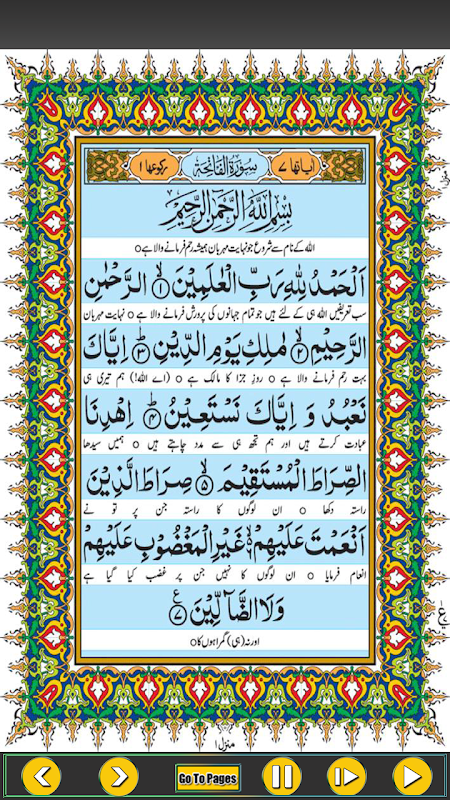 اٰیاتھا ۷ سُوْرَةُ الْفَاتِحَةِ رکوعھا ۱
بِسْمِ اللّٰهِ الرَّحْمٰنِ الرَّحِیْمِ
اللہ کے نام سے شروع جو نہایت مہربان ہمیشہ رحم فرمانے والا ہے ○
اَلْحَمْدُ لِلّٰهِ رَبِّ الْعٰلَمِیْنَ ۙ﴿۱﴾ الرَّحْمٰنِ
سب تعریفیں اللہ ہی کے لئے ہیں جو تمام جہانوں کی پرورش فرمانے والا ہے ○ نہایت مہربان
الرَّحِیْمِ ۙ﴿۲﴾ مٰلِكِ یَوْمِ الدِّیْنِ ؕ﴿۳﴾ اِیَّاكَ
بہت رحم فرمانے والا ہے ○ روزِ جزا کا مالک ہے ○ (اے اللہ!) ہم تیری ہی
نَعْبُدُ وَ اِیَّاكَ نَسْتَعِیْنُ ؕ﴿۴﴾ اِهْدِنَا
عبادت کرتے ہیں اور ہم تجھ ہی سے مدد چاہتے ہیں ○ ہمیں سیدھا
الصِّرَاطَ الْمُسْتَقِیْمَ ۙ﴿۵﴾ صِرَاطَ الَّذِیْنَ
راستہ دکھا ○ ان لوگوں کا راستہ جن پر تو نے
اَنْعَمْتَ عَلَیْهِمْ ۙ۬﴿۶﴾ غَیْرِ الْمَغْضُوْبِ عَلَیْهِمْ
انعام فرمایا ○ ان لوگوں کا نہیں جن پر غضب کیا گیا ہے
وَلَا الضَّآلِّیْنَ ﴿۷﴾ ع
اور نہ (ہی) گمراہوں کا ○
منزل ۱
Go To Pages